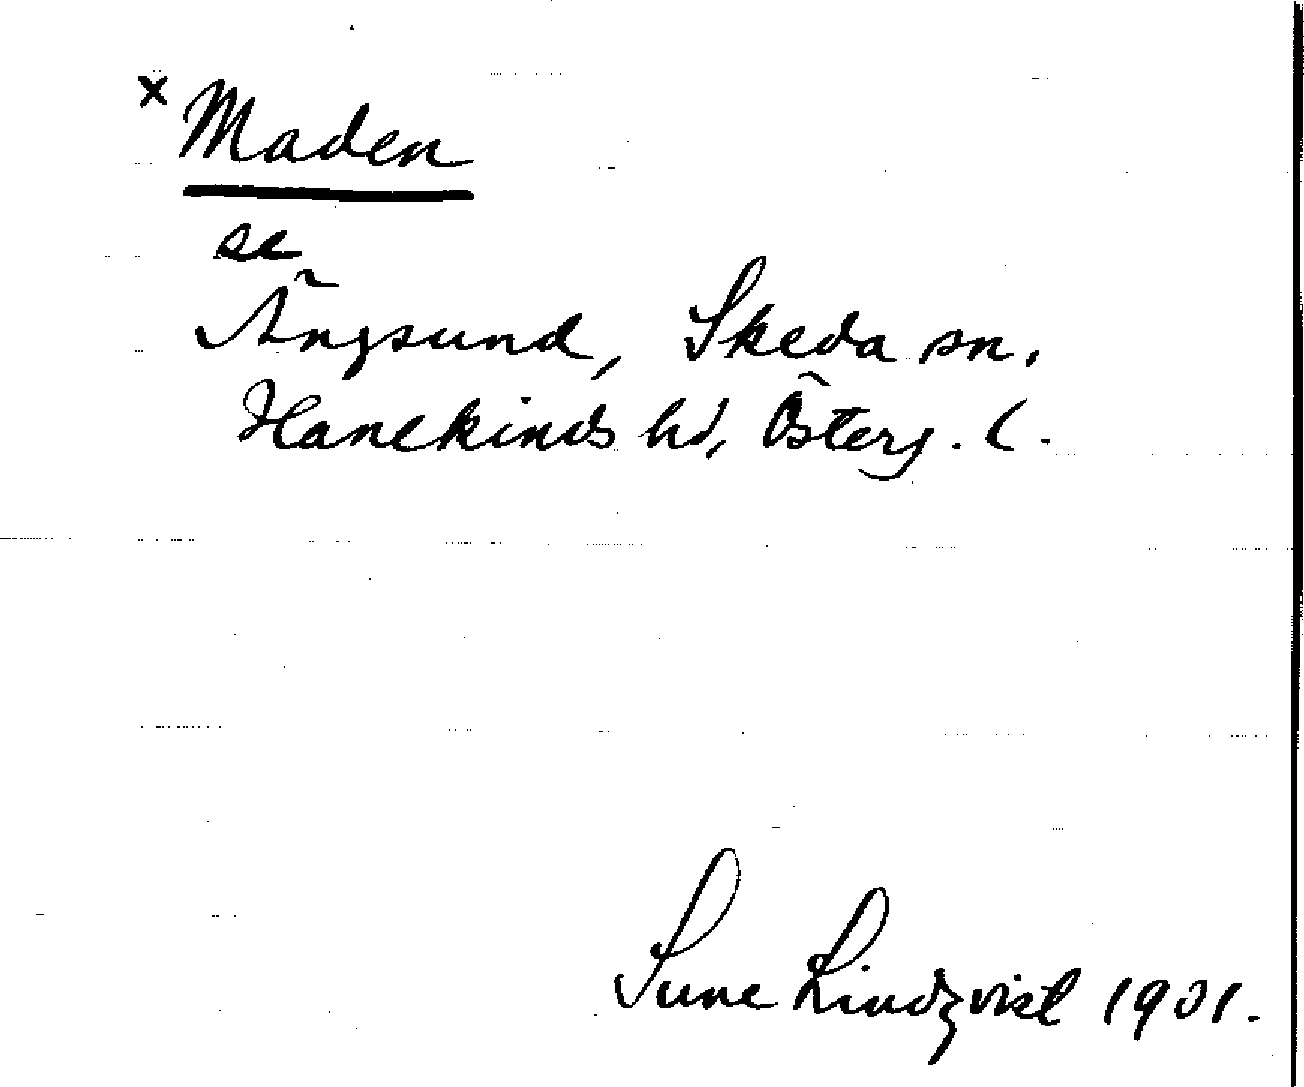 x Maden
se
Ängsund, Skeda sn.
Hanekinds hd, Österg. l.
Sune Lindqvist 1901.